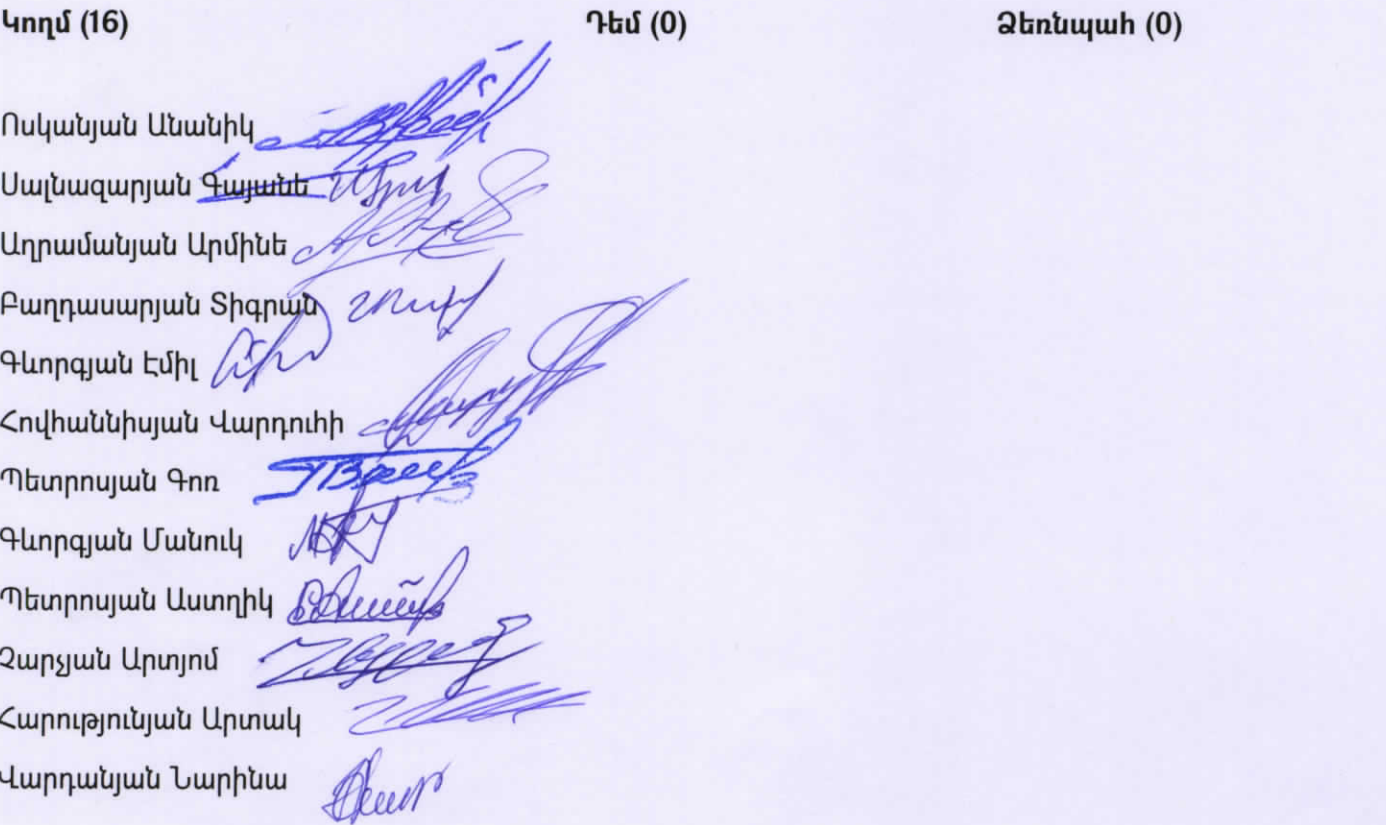 Կողմ (16) Դեմ (0) Ձեռնպահ (0)
Ոսկանյան Անանիկ
Սալնազարյան Գայանե
Աղրամանյան Արմինե
Բաղդասարյան Տիգրան
Գևորգյան Էմիլ
Հովհաննիսյան Վարդուհի
Պետրոսյան Գոռ
Գևորգյան Մանուկ
Պետրոսյան Աստղիկ
Չարչյան Արտյոմ
Հարությունյան Արտակ
Վարդանյան Նարինա